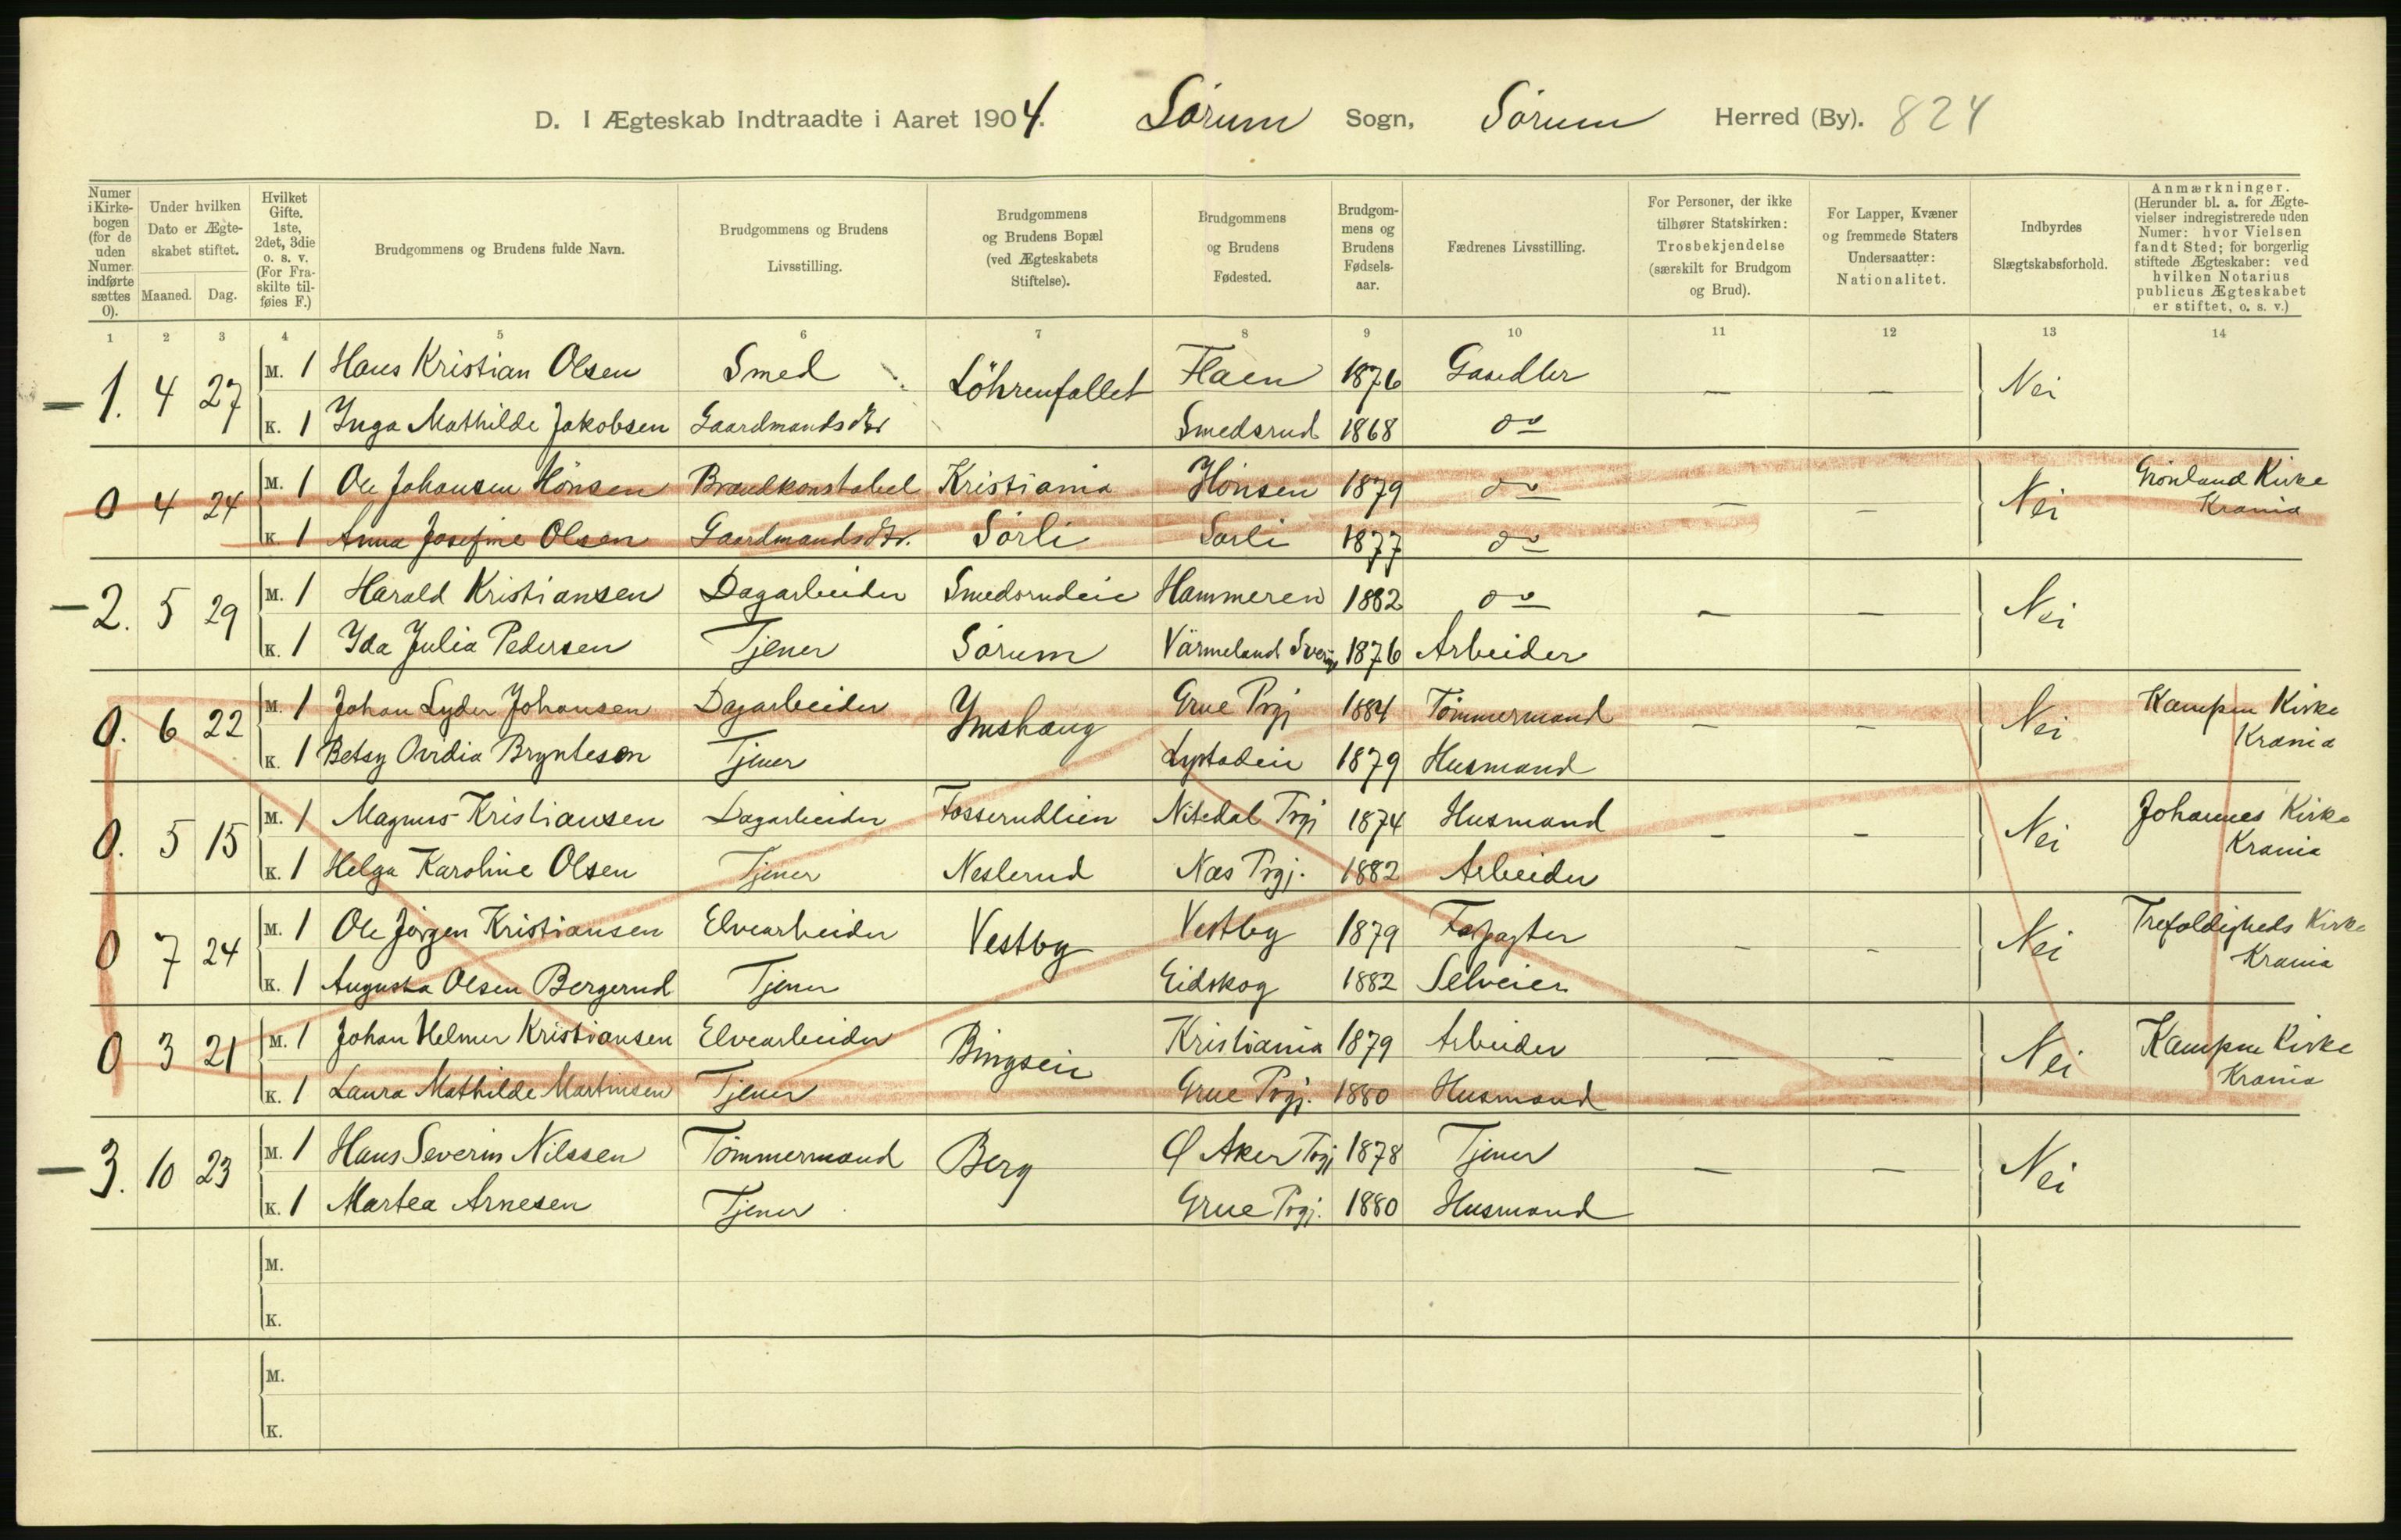 D. I Ægteskab Indtraadte i Aaret 1904. Sörum Sogn, Sörum Herred (By). 824
Numer i Kirkebogen (for de uden Numer indførte sættes 0).
Under hvilken Dato er Ægteskabet stiftet.
Maaned. Dag.
Hvilket Gifte. 1ste, 2det, 3die o. s. v. (For Fraskilte tilføies F.)
Brudgommens og Brudens fulde Navn.
Brudgommens og Brudens Livsstilling.
Brudgommens og Brudens Bopæl (ved Ægteskabets Stiftelse).
Brudgommens og Brudens Fødested.
Brudgommens og Brudens Fødselsaar.
Fædrenes Livsstilling.
For Personer, der ikke tilhører Statskirken: Trosbekjendelse (særskilt for Brudgom og Brud).
For Lapper, Kvæner og fremmede Staters Undersaatter: Nationalitet.
Indbyrdes Slægtskabsforhold.
Anmærkninger. (Herunder bl. a. for Ægtevielser indregistrerede uden Numer: hvor Vielsen fandt Sted; for borgerlig stiftede Ægteskaber: ved hvilken Notarius publicus Ægteskabet er stiftet, o. s. v.)
1 2 3 4 5 6 7 8 9 10 11 12 13 14
1. 4 27 M. 1 Hans Kristian Olsen Smed Löhrenfallet Flaen 1876 — — Nei
K. 1 Inga Mathilde Jakobsen Gaardmandsdtr Smedsrud 1868 do
0 4 24 M. 1 Ole Johansen Hönsen Brandkonstabel Kristiania Hönsen 1879 do — — Nei Grönland Kirke Krania
K. 1 Anna Josefine Olsen Gaardmandsdtr. Sörli Sörli 1877 do
2. 5 29 M. 1 Harald Kristiansen Dagarbeider Smedsrudeie Hammeren 1882 do — — Nei
K. 1 Ida Julia Pedersen Tjener Sörum Värmeland Sverige 1876 Arbeider
0. 6 22 M. 1 Johan Lyder Johansen Dagarbeider Ymshaug Grue Prgj 1884 Tömmermand — — Nei Kampen Kirke Krania
K. 1 Betsy Ovidia Bryntesen Tjener 1879 Husmand
0. 5 15 M. 1 Magnus Kristiansen Dagarbeider Fosserudlien Nitedal Prgj 1874 Husmand — — Nei Johannes Kirke Krania
K. 1 Helga Karoline Olsen Tjener Neslerud Næs Prgj. 1882 Arbeider
0 7 24 M. 1 Ole Jörgen Kristiansen Elvearbeider Vestby Vestby 1879 Forpagter — — Nei Trefoldigheds Kirke Krania
K. 1 Augusta Olsen Bergerud Tjener Eidskog 1882 Selveier
0 3 21 M. 1 Johan Helmer Kristiansen Elvearbeider Bingseie Kristiania 1879 Arbeider — — Nei Kampen Kirke Krania
K. 1 Laura Mathilde Martinsen Tjener Grue Prgj. 1880 Husmand
3. 10 23 M. 1 Hans Severin Nilssen Tömmermand Berg Ø Aker Prgj 1878 Tjener — — Nei
K. 1 Martea Arnesen Tjener Grue Prgj. 1880 Husmand
M.
K.
M.
K.